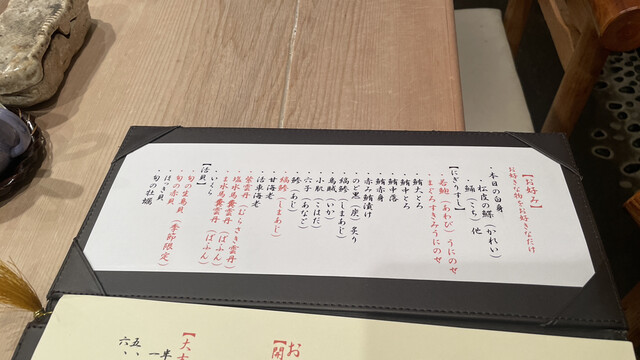 【お好み】
お好きな物をお好きなだけ
・本日の白身
松皮の鰈（かれい）
鯒（こち）他
【にぎりすし】
・鮑（あわび）うにのせ
・まぐろすきみうにのせ
・鮪大とろ
・鮪中とろ
・鮪中落
・鮪赤身
・赤み鮪漬け
・のど黒（炭）炙り
・縞鯵（しまあじ）
・烏賊（いか）
・小肌（こはだ）
・穴子（あなご）
・鯵（あじ）
・縞鯵（しまあじ）
・甘海老
・活車海老
・紫雲丹（むらさき雲丹）
・塩水馬糞雲丹（ばふん）
・ま水馬糞雲丹（ばふん）
・いくら
【活貝】
・旬の生鳥貝
・旬の赤貝（季節限定）
・ほっき貝
・旬の牡蠣
お
【開
【大
五、
六、